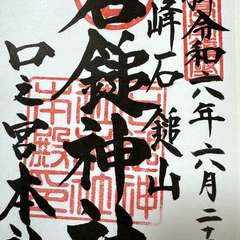 令和六年六月二十
峰石鎚山
石鎚神社
口之宮本社